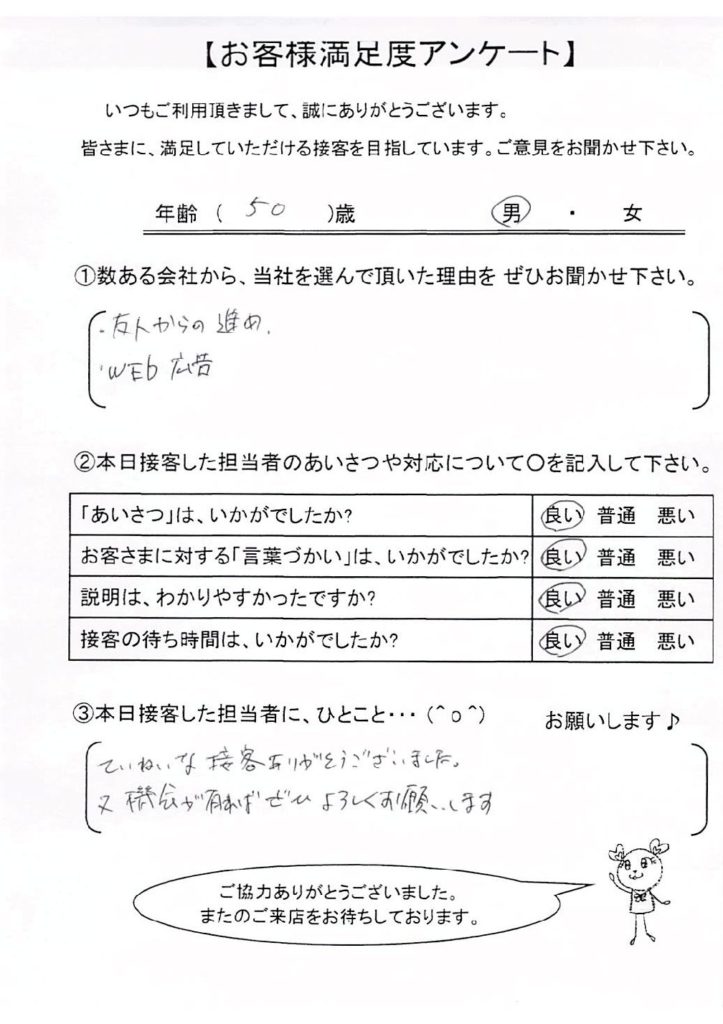 【お客様満足度アンケート】
いつもご利用頂きまして、誠にありがとうございます。
皆さまに、満足していただける接客を目指しています。ご意見をお聞かせ下さい。
年齢 ( 50 )歳 男 ・ 女
①数ある会社から、当社を選んで頂いた理由を ぜひお聞かせ下さい。
・友人からの進め.
・WEb 広告
②本日接客した担当者のあいさつや対応について〇を記入して下さい。
「あいさつ」は、いかがでしたか? 良い 普通 悪い
お客さまに対する「言葉づかい」は、いかがでしたか? 良い 普通 悪い
説明は、わかりやすかったですか? 良い 普通 悪い
接客の待ち時間は、いかがでしたか? 良い 普通 悪い
③本日接客した担当者に、ひとこと・・・ (^o^) お願いします♪
ていねいな接客ありがとうございました。
又機会が有ればぜひよろしくお願いします
ご協力ありがとうございました。
またのご来店をお待ちしております。